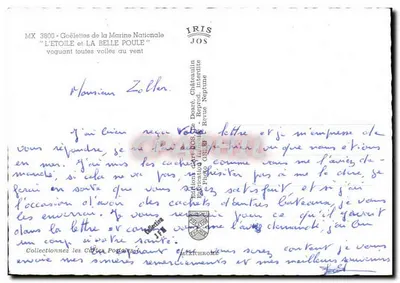 MX 3800 - Goélettes de la Marine Nationale
"L'ETOILE et LA BELLE POULE"
voguant toutes voiles au vent
IRIS
JOS
Monsieur Zoller.
J'ai bien reçu votre lettre et je m'empresse de
vous répondre, je
en mer. J'ai mis les cachets comme vous me l'aviez de-
mandé, si cela ne va pas, n'hésitez pas à me le dire, je
ferai en sorte que vous soyez satisfait, et si j'ai
l'occasion d'avoir des cachets d'autres bateaux, je vous
les enverrai. vous pour ce qu'il y avait
dans la lettre et comme vous me l'avez demandé, j'ai bu
un coup à votre santé.
Collectionnez les Cartes
En espérant que vous serez content je vous
envoie mes sincères remerciements et mes meilleurs souvenirs